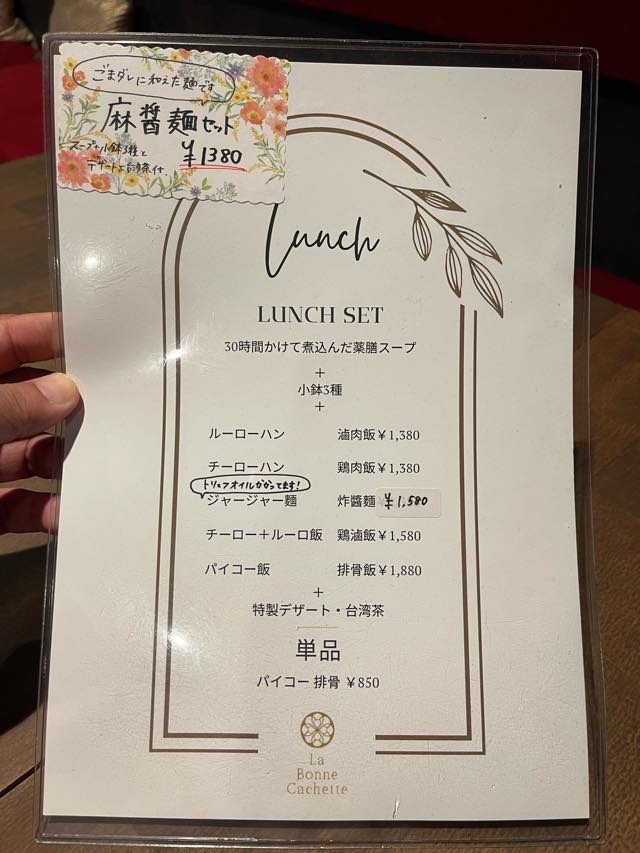 ごまダレに和えた麺です
麻醤麺セット
スープと小鉢3種と
デザートと台湾茶付
¥1380
Lunch
LUNCH SET
30時間かけて煮込んだ薬膳スープ
+
小鉢3種
+
ルーローハン 滷肉飯¥1,380
チーローハン 鶏肉飯¥1,380
トリュフオイルかかってます!
ジャージャー麺 炸醬麵 ¥1,580
チーロー+ルーロ飯 鶏滷飯¥1,580
パイコー飯 排骨飯¥1,880
+
特製デザート・台湾茶
単品
パイコー 排骨 ¥850
La
Bonne
Cachette